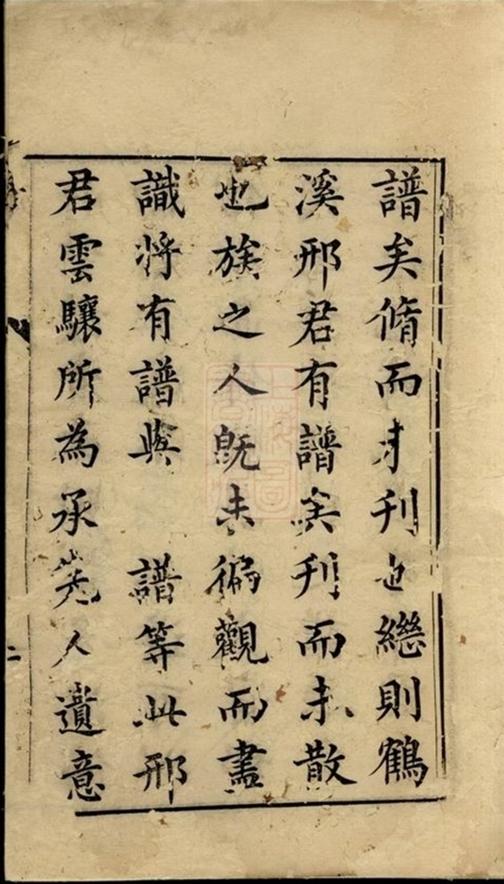 譜矣脩而未刊也繼則鶴
溪邢君有譜矣刊而未散
也族之人既未徧觀而盡
識將有譜與 譜等此邢
君雲驤所為承先人遺意